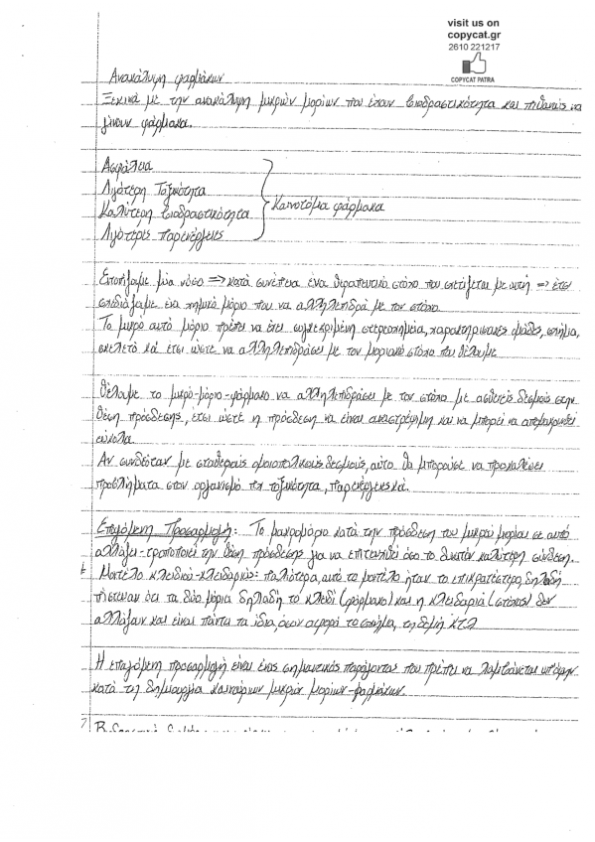 visit us on
copycat.gr
2610 221217
COPYCAT PATRA
Ανακάλυψη φαρμάκων
Ξεκινά με την ανακάλυψη μικρών μορίων που έχουν βιοδραστικότητα και πιθανώς να
γίνουν φάρμακα.
Ασφάλεια
Λιγότερη Τοξικότητα
Καλύτερη βιοδραστικότητα
Λιγότερες παρενέργειες
Καινοτόμα φάρμακα
Εντοπίζουμε μία νόσο => κατά συνέπεια ένα θεραπευτικό στόχο που σχετίζεται με αυτή => έτσι
σχεδιάζουμε ένα χημικό μόριο που να αλληλεπιδρά με τον στόχο.
Το μικρό αυτό μόριο πρέπει να έχει συγκεκριμένη στερεοχημεία, χαρακτηριστικές ομάδες, σχήμα,
σκελετό κά έτσι ώστε να αλληλεπιδράσει με τον μοριακό στόχο που θέλουμε.
Θέλουμε το μικρό-μόριο-φάρμακο να αλληλεπιδράσει με τον στόχο με ασθενείς δεσμούς στην
θέση πρόσδεσης, έτσι ώστε η πρόσδεση να είναι αναστρέψιμη και να μπορεί να απομακρυνθεί
εύκολα.
Αν συνδεόταν με σταθερούς ομοιοπολικούς δεσμούς, αυτό θα μπορούσε να προκαλέσει
προβλήματα στον οργανισμό πχ τοξικότητα, παρενέργειες κά.
Επαγόμενη Προσαρμογή: Το μακρομόριο κατά την πρόσδεση του μικρού μορίου σε αυτό
αλλάζει-τροποποιεί την θέση πρόσδεσης για να επιτευχθεί όσο το δυνατόν καλύτερη σύνδεση.
Μοντέλο κλειδιού-κλειδαριάς: παλιότερα, αυτό το μοντέλο ήταν το επικρατέστερο, δηλαδή
πίστευαν ότι τα δύο μόρια δηλαδή το κλειδί (φάρμακο) και η κλειδαριά (στόχος) δεν
αλλάζουν και είναι πάντα τα ίδια, όσον αφορά το σχήμα, τη δομή κτλ
Η επαγόμενη προσαρμογή είναι ένας σημαντικός παράγοντας που πρέπει να λαμβάνεται υπ'όψην
κατά τη δημιουργία καινούριων μικρών μορίων-φαρμάκων.